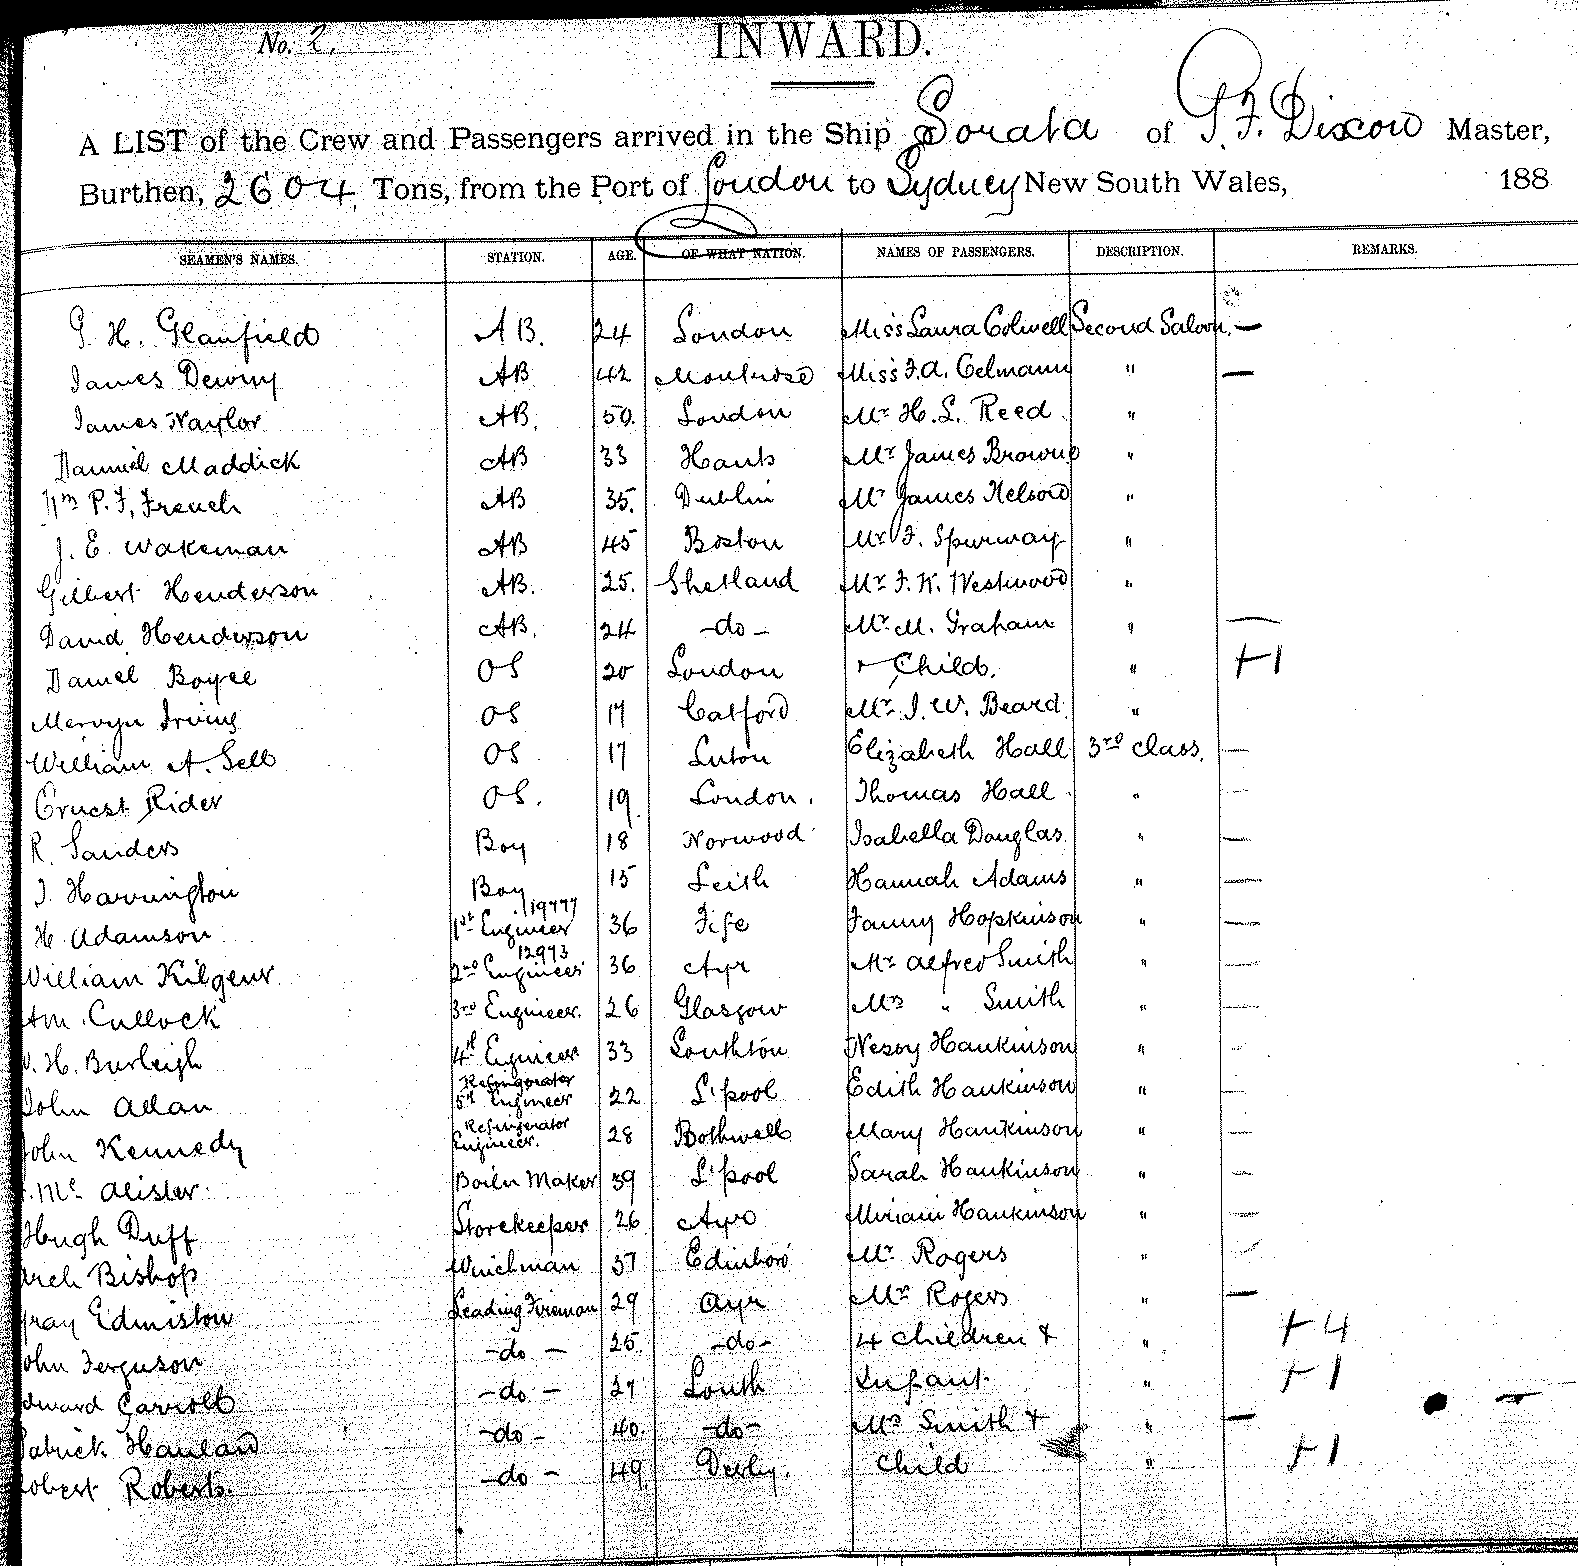 No. 2.
INWARD.
A LIST of the Crew and Passengers arrived in the Ship Sorata of P. F. Dixon Master,
Burthen, 2604 Tons, from the Port of London to Sydney New South Wales, 188
SEAMEN'S NAMES. STATION. AGE. OF WHAT NATION. NAMES OF PASSENGERS. DESCRIPTION. REMARKS.
G. H. Glanfield AB. 24 London Miss Laura Colwell Second Saloon. —
James AB 42 Montrose Miss F. A. Celmann " —
James Naylor AB. 50. London Mr H. L. Reed "
Maddick AB 33 Hants Mr James Browne "
Wm P. F. French AB 35. Dublin Mr James Nelson "
J. E. Wakeman AB 45 Boston Mr F. Spurway "
Gilbert Henderson AB. 25. Shetland Mr F. K. Westwood "
David Henderson AB. 24 -do- Mr M. Graham " —
Daniel Boyce OS 20 London + Child. " +1
Mervyn Irving OS 17 Catford Mr J. W. Beard "
William A. Sell OS 17 Luton Elizabeth Hall 3rd Class. —
Ernest Rider OS. 19. London. Thomas Hall " —
R. Sanders Boy 18 Norwood Isabella Douglas " —
J. Harrington Boy 15 Leith Hannah Adams " —
H. Adamson 1st Engineer 19777 36 Fife Fanny Hopkinson " —
William Kilgour 2nd Engineer 12973 36 Ayr Mr Alfred Smith " —
Cullock 3rd Engineer. 26 Glasgow Mrs " Smith " —
H. Burleigh 4th Engineer 33 Southton Hankinson " —
John Allan Refrigerator 5th Engineer 22 L'pool Edith Hankinson " —
John Kennedy Refrigerator Engineer. 28 Bothwell Mary Hankinson " —
Mc Alister Boiler Maker 39 L'pool Sarah Hankinson " —
Hugh Duff Storekeeper 26 Ayr Miriam Hankinson " —
Arch Bishop Winchman 37 Edinboro' Mr Rogers " —
Edmiston Leading Fireman 29 Ayr Mrs Rogers " —
John Ferguson -do- 25. -do- 4 Children & " +4
Edward Carroll -do- 27 Louth Infant. " +1
Patrick Hanlan -do- 40. -do- Mrs Smith + " —
Robert Roberts. -do- 49 Derby. Child " +1